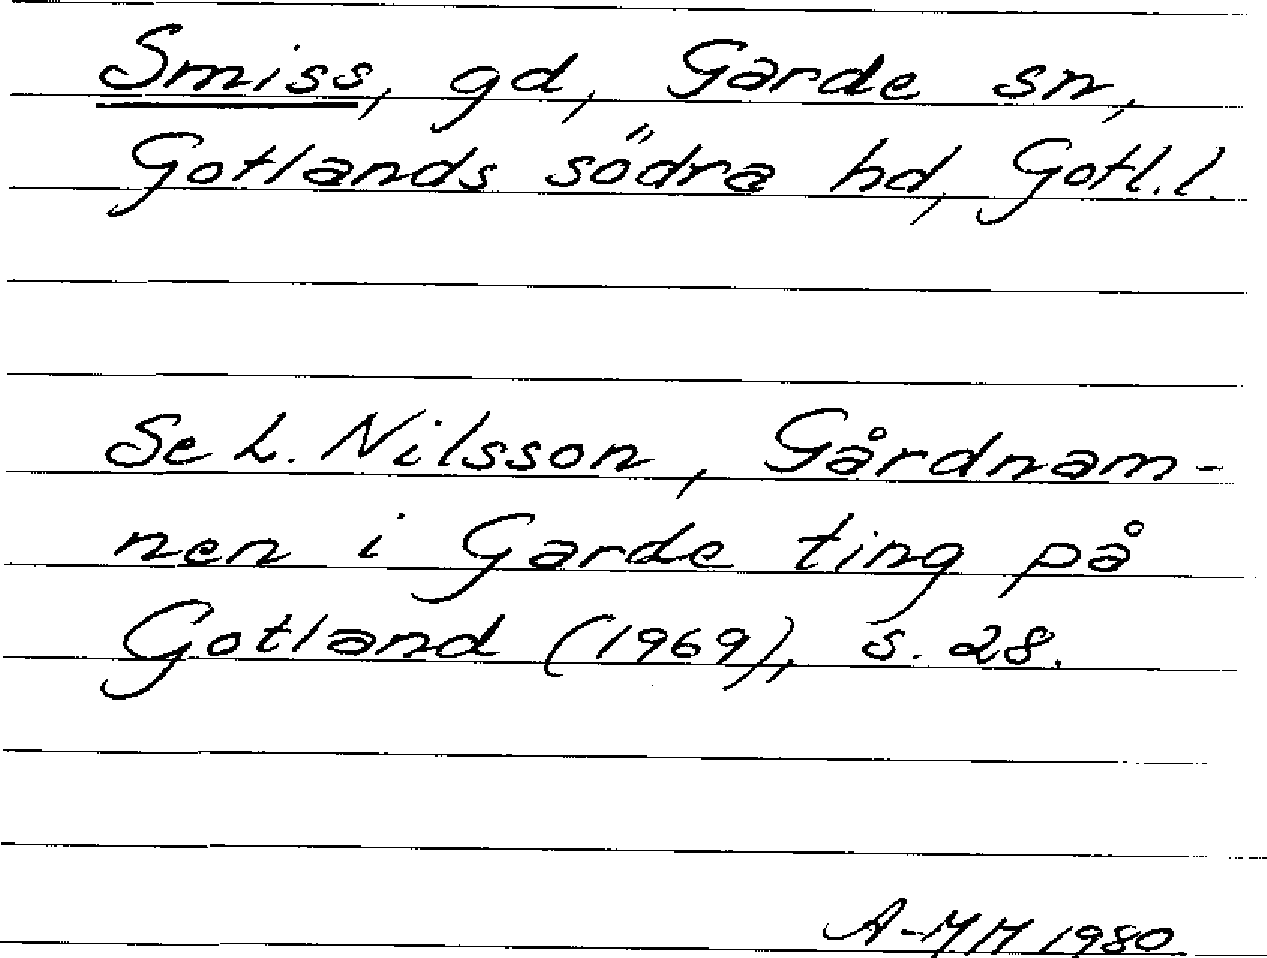 Smiss, gd, Garde sn,
Gotlands södra hd, Gotl.l.
Se L. Nilsson, Gårdnam-
nen i Garde ting på
Gotland (1969), s. 28.
A-MM 1980